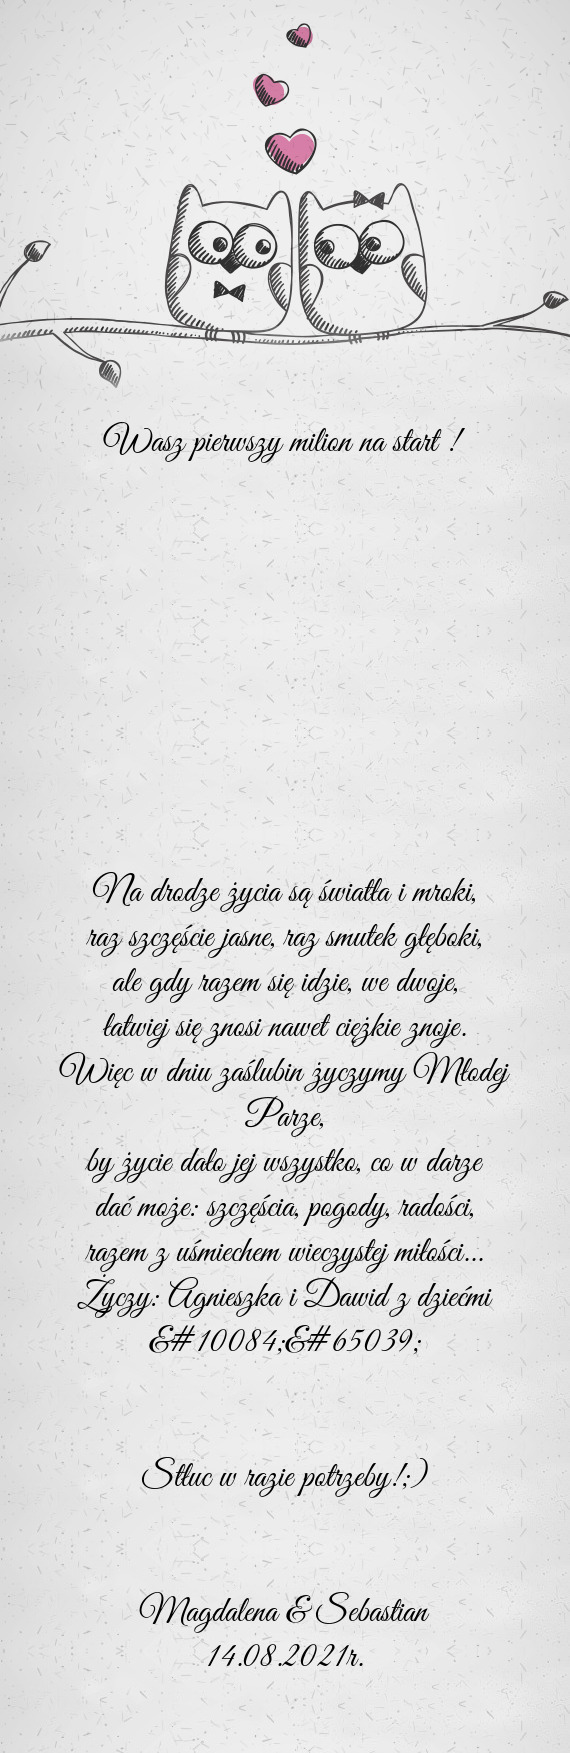 Wasz pierwszy milion na start !
Na drodze życia są światła i mroki,
raz szczęście jasne, raz smutek głęboki,
ale gdy razem się idzie, we dwoje,
łatwiej się znosi nawet ciężkie znoje.
Więc w dniu zaślubin życzymy Młodej
Parze,
by życie dało jej wszystko, co w darze
dać może: szczęścia, pogody, radości,
razem z uśmiechem wieczystej miłości...
Życzy: Agnieszka i Dawid z dziećmi
&#10084;&#65039;
Stłuc w razie potrzeby!;)
Magdalena & Sebastian
14.08.2021r.